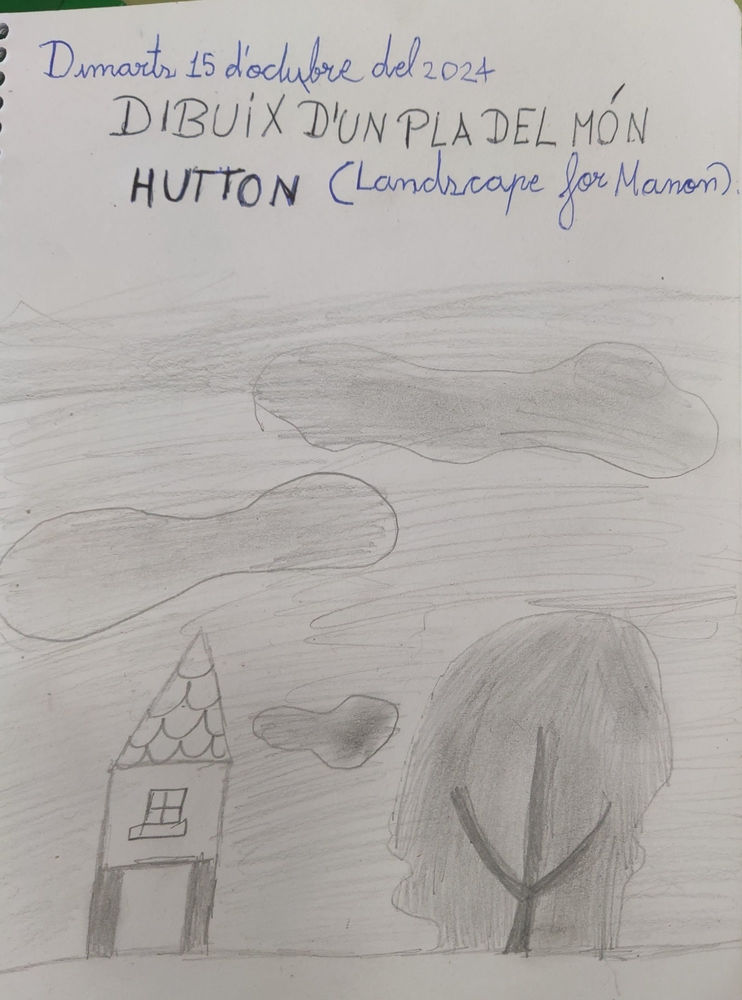 Dimarts 15 d'octubre del 2024
DIBUIX D'UN PLA DEL MÓN
HUTTON (Landscape for Manon).